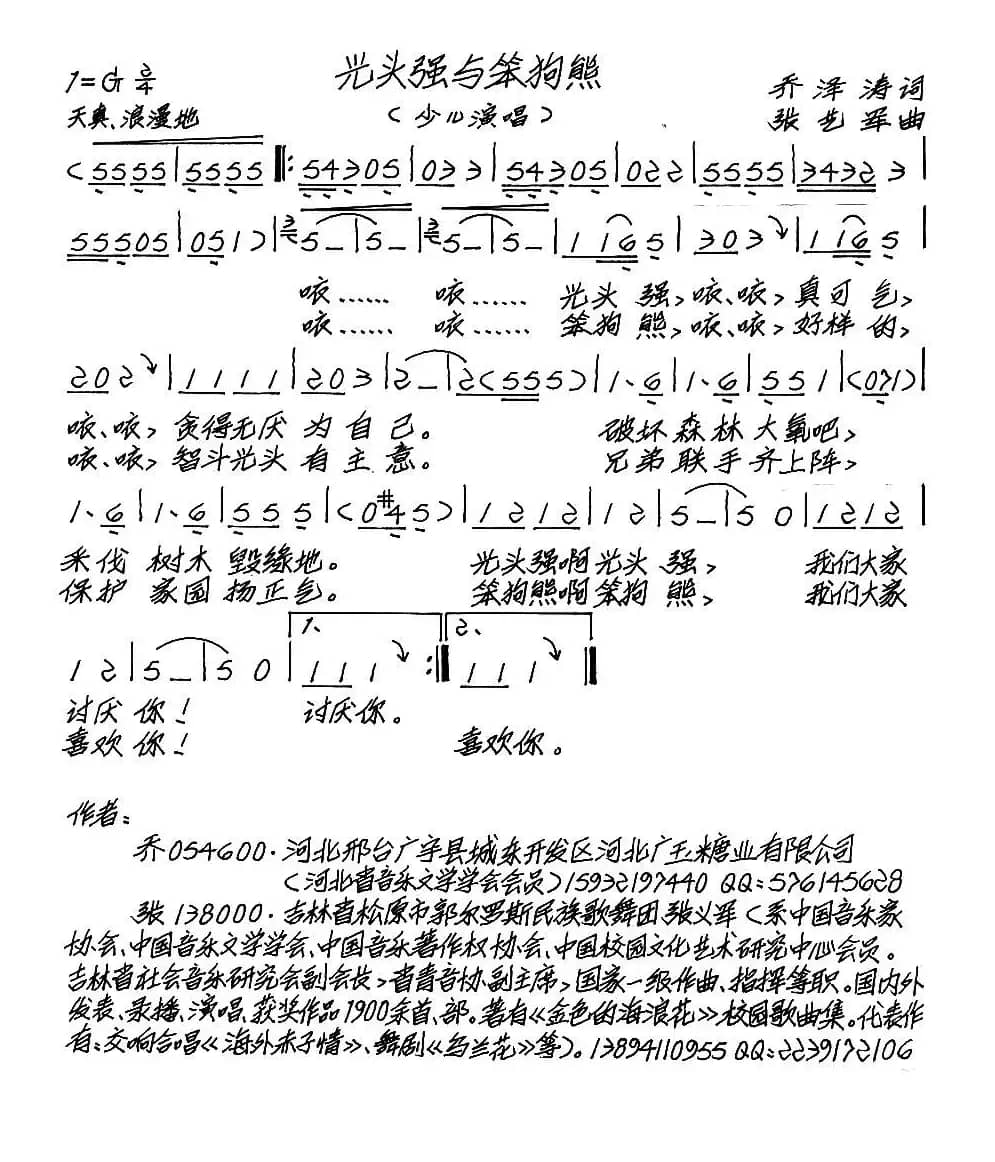 光头强与笨狗熊
1=G 2/4
乔泽涛词
天真、浪漫地
（少儿演唱）
张艺军曲
(5555|5555‖:54305|033|54305|022|5555|34323|
55505|051)|5_|5_|5_|5_|1165|303|1165|
咴…… 咴…… 光头 强，咴、咴，真可 气，
咴…… 咴…… 笨狗 熊，咴、咴，好样 的，
202|1111|203|2_|2(555)|1、6|1、6|551|(071)|
咴、咴，贪得无厌 为自己。 破坏森林大氧吧，
咴、咴，智斗光头 有主意。 兄弟联手齐上阵，
1、6|1、6|555|(0#45)|1212|12|5_|50|1212|
采伐 树木 毁绿地。 光头强啊光头 强， 我们大家
保护 家园 扬正气。 笨狗熊啊笨狗 熊， 我们大家
1、 2、
12|5_|50|111:‖111‖
讨厌 你！ 讨厌你。
喜欢 你！ 喜欢你。
作者：
乔054600·河北邢台广宇县城东开发区河北广玉米糖业有限公司
（河北省音乐文学学会会员）15932197440 QQ：576145628
张138000·吉林省松原市郭尔罗斯民族歌舞团张义军（系中国音乐家
协会、中国音乐文学学会、中国音乐著作权协会、中国校园文化艺术研究中心会员。
吉林省社会音乐研究会副会长，省青音协副主席，国家一级作曲、指挥等职。国内外
发表、录播、演唱、获奖作品1900余首、部。著有《金色的海浪花》校园歌曲集。代表作
有：交响合唱《海外赤子情》、舞剧《乌兰花》等）。13894110955 QQ：2239172106